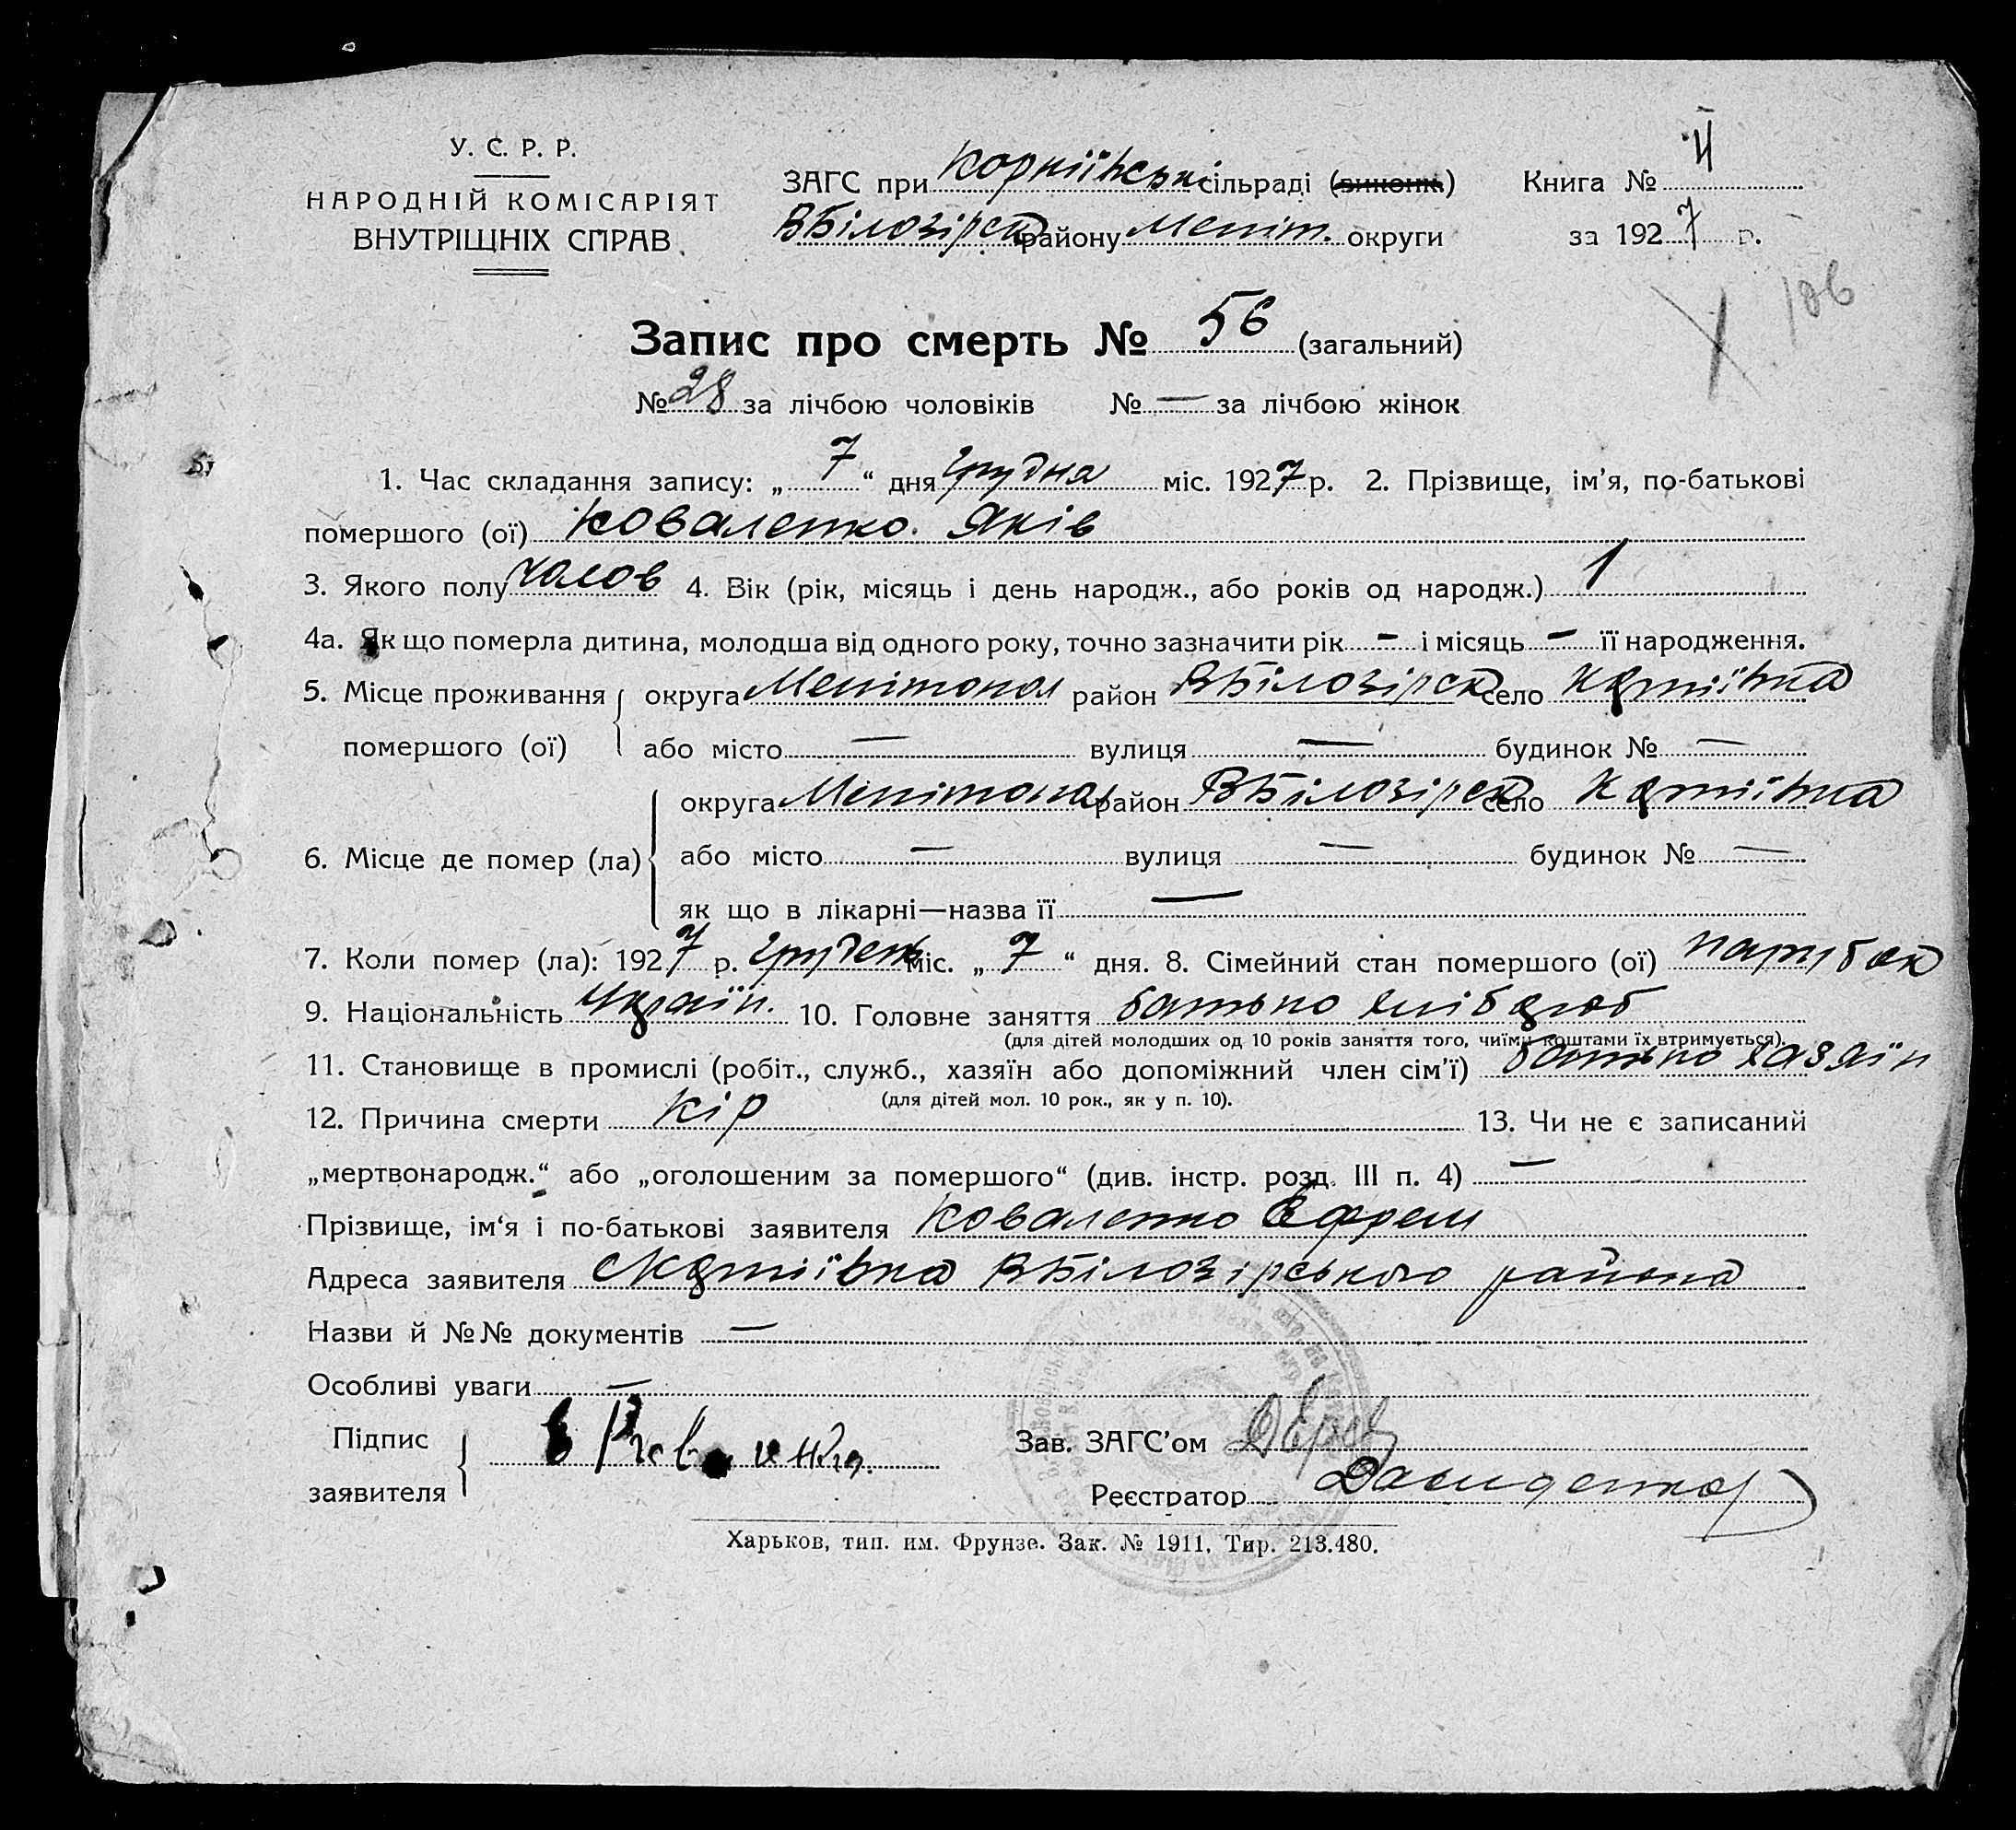 У. С. Р. Р.
НАРОДНІЙ КОМІСАРІЯТ
ВНУТРІШНІХ СПРАВ
ЗАГС при Корніївськ сільраді (виконк.)
ВБілозірск району Меліт. округи
Книга № II
за 1927 р.
106
Запис про смерть № 56 (загальний)
№ 28 за лічбою чоловіків № — за лічбою жінок
1. Час складання запису: „ 7 “ дня грудня міс. 1927 р. 2. Прізвище, ім’я, по-батькові
помершого (ої) Коваленко Яків
3. Якого полу чолов 4. Вік (рік, місяць і день народж., або років од народж.) 1
4а. Як що померла дитина, молодша від одного року, точно зазначити рік - і місяць - її народження.
5. Місце проживання округа Мелітопол район ВБілозірск село
помершого (ої) або місто — вулиця — будинок № —
округа Мелітопол район ВБілозірск село
6. Місце де помер (ла) або місто — вулиця — будинок № —
як що в лікарні—назва її —
7. Коли помер (ла): 1927 р. грудень міс. „ 7 “ дня. 8. Сімейний стан помершого (ої) парубок
9. Національність Україн. 10. Головне заняття батько хлібороб
(для дітей молодших од 10 років заняття того, чиїми коштами їх втримується).
11. Становище в промислі (робіт., служб., хазяїн або допоміжний член сім’ї) батько хазяїн
(для дітей мол. 10 рок., як у п. 10).
12. Причина смерти кір 13. Чи не є записаний
„мертвонародж.“ або „оголошеним за помершого“ (див. інстр. розд. III п. 4) —
Прізвище, ім‘я і по-батькові заявителя Коваленко Єфрем
Адреса заявителя ВБілозірського района
Назви й №№ документів —
Особливі уваги —
Підпис
заявителя
Зав. ЗАГС’ом
Реєстратор Давиденко
Харьков, тип. им. Фрунзе. Зак. № 1911. Тир. 213.480.